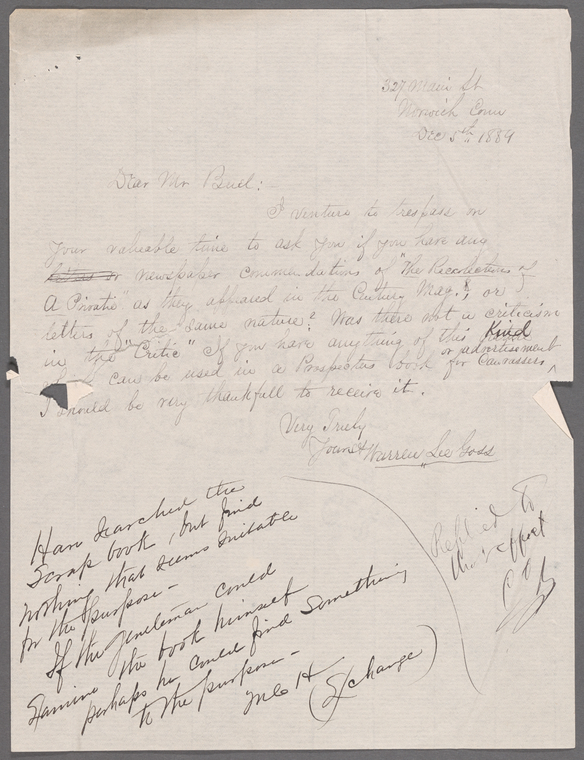 327 Main St
Norwich Conn
Dec 5th 1889
Dear Mr Buel:-
I venture to trespass on
your valuable time to ask you if you have any
letters or newspaper commendations of "The Recollections of
A Private" as they appeared in the Century Mag., or
letters of the same nature? Was there not a criticism
in the "Critic" If you have anything of this Kind
which can be used in a Prospectus book or advertisement for Canvassers
I should be very thankfull to receive it.
Very Truly
Yours Warren Lee Goss
Have searched the
Scrap book, but find
nothing that seems suitable
for the purpose -
If the gentleman could
Examine the book himself
perhaps he could find something
to the purpose -
(Exchange)
Replied to
this effect